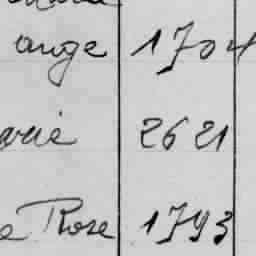 ange 1704
arie 2621
a Rose 1793